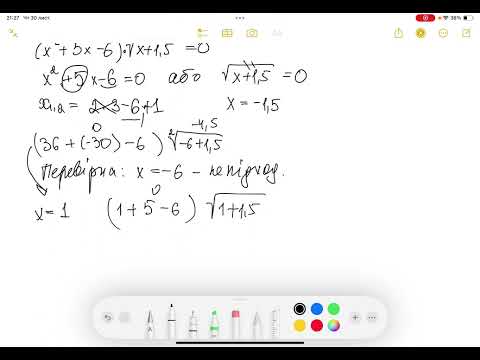 21:27 Чт 30 лист
38%
(x² + 5x - 6)·√x+1,5 = 0
x² + 5x - 6 = 0 або √x+1,5 = 0
x₁,₂ = 2 3 -6; +1 x = -1,5
0 -4,5
(36 + (-30) - 6) ²√-6+1,5
Перевірка: x = -6 - не підход.
0
x = 1 (1 + 5 - 6) √1+1,5